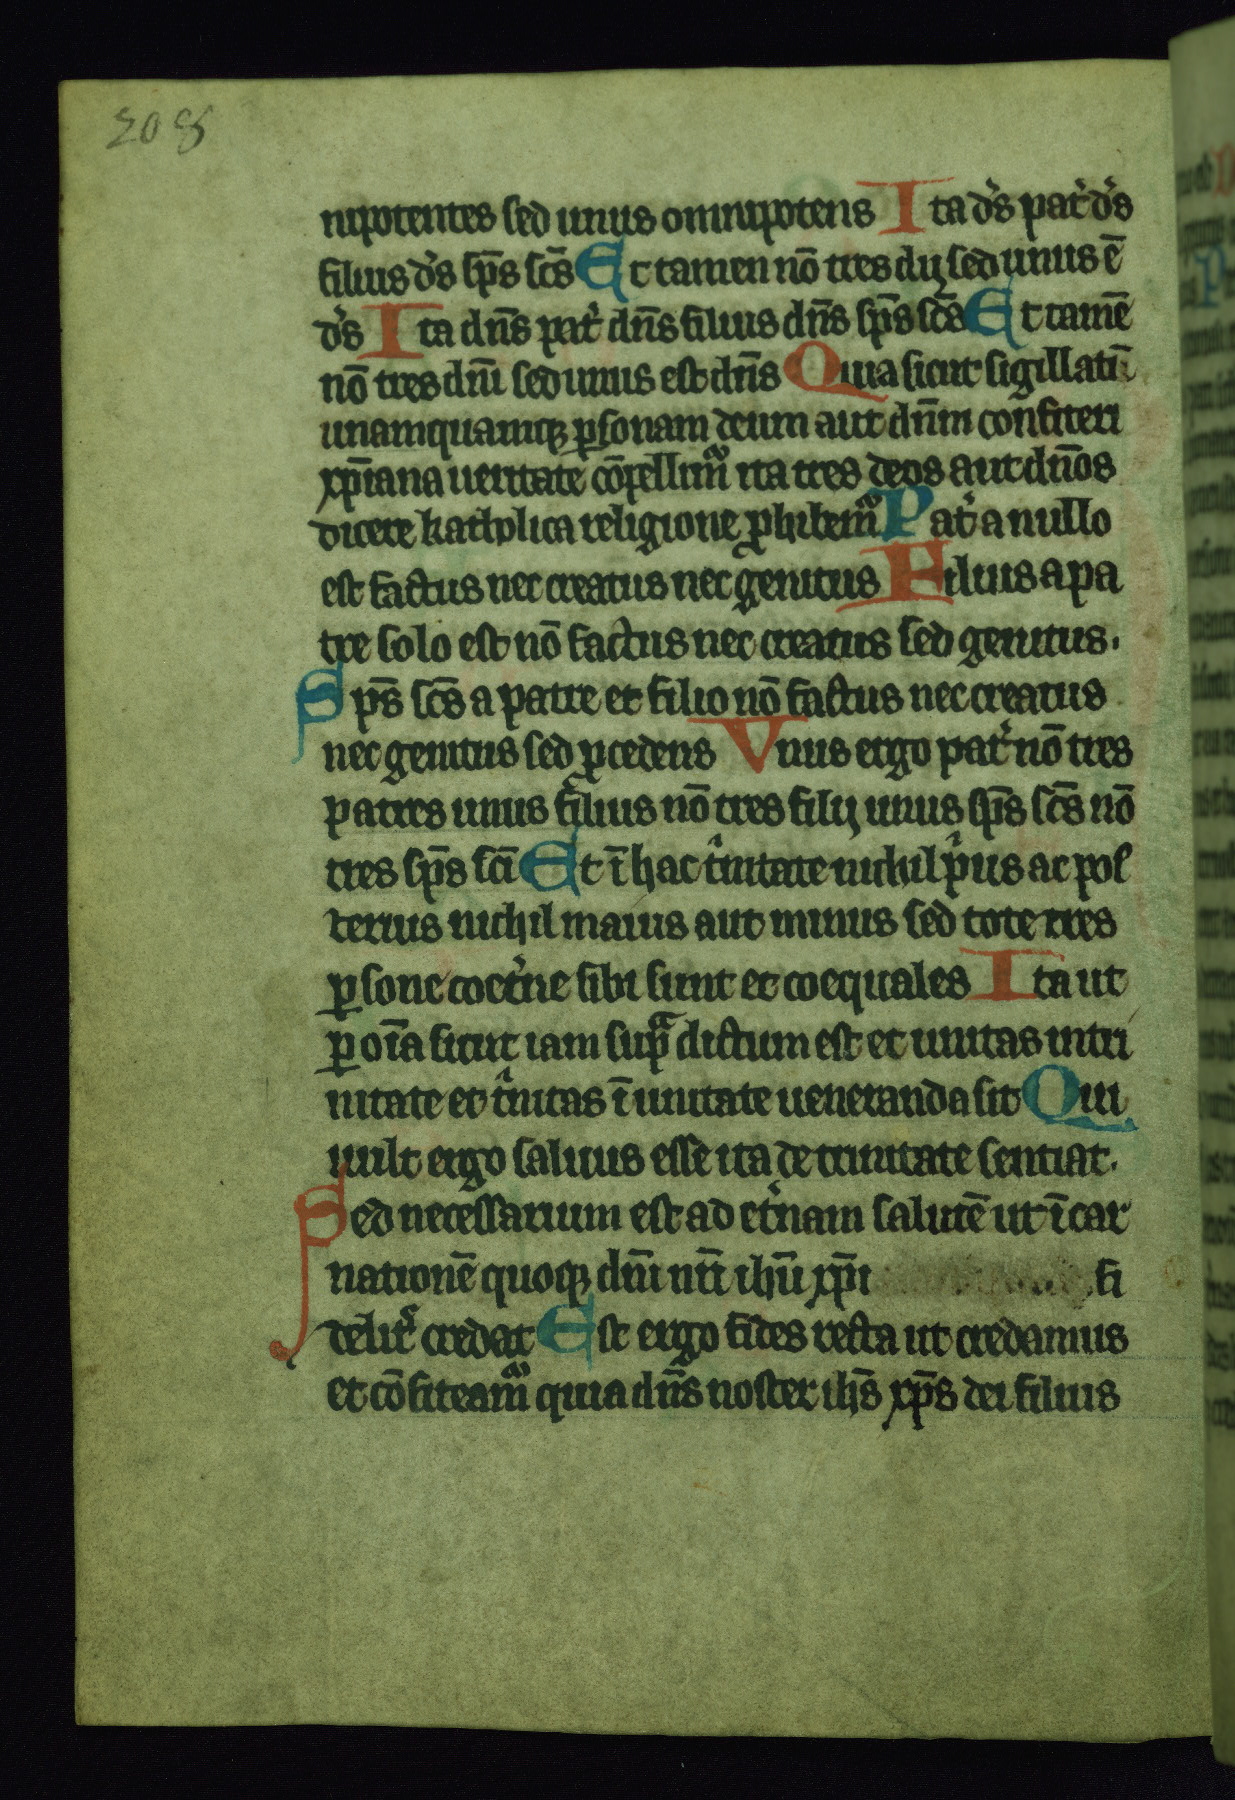 208
nipotentes sed unus omnipotens Ita d's pat' d's
filius d's sp̄s sc̄s Et tamen nō tres dij sed unus ē
d's Ita dn̄s pat' dn̄s filius dn̄s sp̄s sc̄s Et tamē
nō tres dn̄i sed unus est dn̄s Quia sicut sigillatī
unamquamqꝫ ꝑsonam deum aut dn̄m confiteri
xp̄iana ueritate cōpellimᷣ ita tres deos aut dn̄os
dicere katholica religione ꝓhibemᷣ Pat' a nullo
est factus nec creatus nec genitus Filius a pa
tre solo est nō factus nec creatus sed genitus.
Sp̄s sc̄s a patre et filio nō factus nec creatus
nec genitus sed ꝓcedens Vnus ergo pat' nō tres
patres unus filius nō tres filij unus sp̄s sc̄s nō
tres sp̄s sc̄i Et ī hac tͥnitate nichil pͥus ac pos
terius nichil maius aut minus sed tote tres
ꝑsone coet'ne sibi sunt et coequales Ita ut
ꝑ oīa sicut iam supᷓ dictum est et unitas in tri
nitate et tͥnitas ī unitate ueneranda sit Qui
uult ergo saluus esse ita de trinitate sentiat.
Sed necessarium est ad et'nam salutē ut īcar
nationē quoqꝫ dn̄i nr̄i ihū xp̄i fi
delit' credat Est ergo fides recta ut credamus
et cōfiteamᷣ quia dn̄s noster ihs̄ xp̄s dei filius